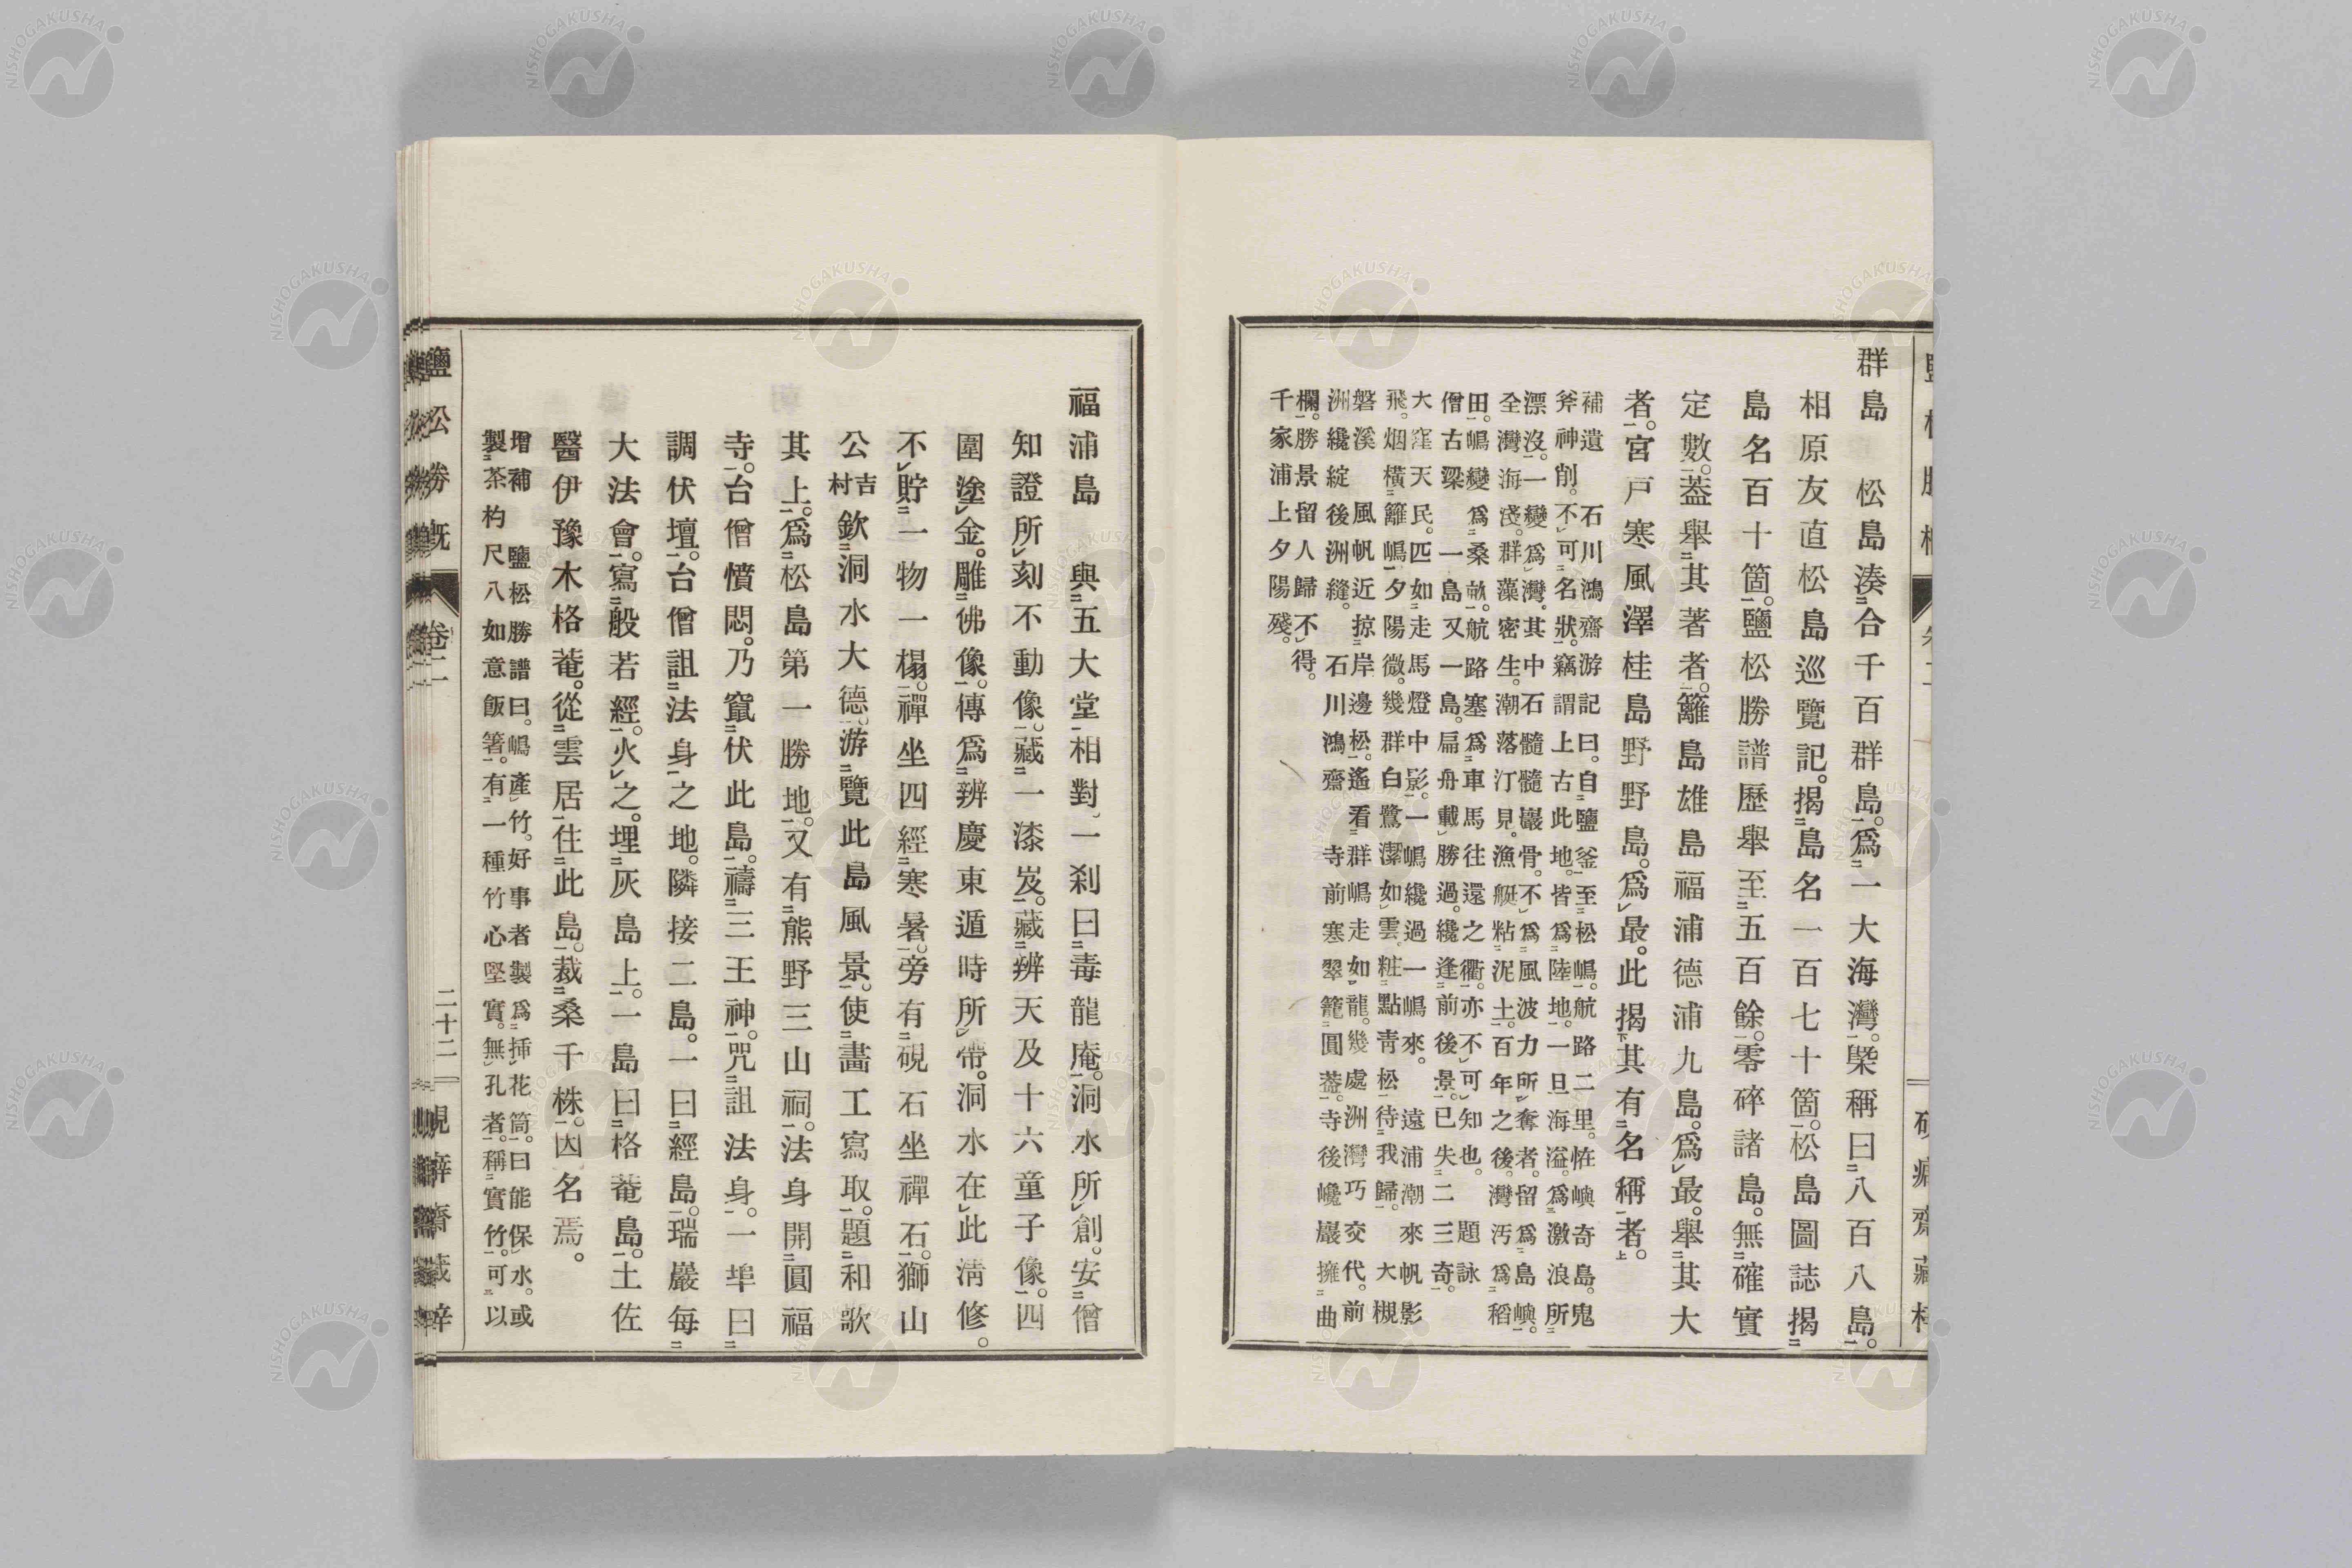 群島　松島湊合千百群島。爲一大海灣。槩稱曰八百八島。
相原友直松島巡覽記。揭島名一百七十箇。松島圖誌揭
島名百十箇。鹽松勝譜歷舉至五百餘。零碎諸島。無確實
定數。葢舉其著者。籬島雄島福浦德浦九島。爲最。舉其大
者。宮戶寒風澤桂島野野島。爲最。此揭其有名稱者。
補遺　石川鴻齋游記曰。自鹽釜至松嶋。航路二里。恠嶼奇島。鬼
斧神削。不可名狀。竊謂上古此地。皆爲陸地。一旦海溢。爲激浪所
漂沒。一變爲灣。其中石髓髓巖骨。不爲風波力所奪者。留爲島嶼。
全灣海淺。群藻密生。潮落汀見。漁艇粘泥土。百年之後。灣汚爲稻
田。嶋變爲桑畝。航路塞爲車馬往還之衢。亦不可知也。　題詠
僧古梁　一島又一島。扁舟載勝過。纔逢前後景。已失二三奇。
大窪天民。匹如走馬燈中影。一嶋纔過一嶋來。　遠浦潮來帆影
飛。烟橫籬嶋夕陽微。幾群白鷺潔如雲。粧點靑松待我歸。　大槻
磐溪　風帆近掠岸邊松。遙看群嶋走如龍。幾處洲灣巧交代。前
洲纔綻後洲縫。　石川鴻齋　寺前寒翠籠圓葢。寺後巉巖擁曲
欄。勝景留人歸不得。
千家浦上夕陽殘。
福浦島　與五大堂相對、一刹曰毒龍庵。洞水所創。安僧
知證所刻不動像。藏一漆岌。藏辨天及十六童子像。四
圍塗金。雕佛像。傳爲辨慶東遁時所帶。洞水在此淸修。
不貯一物一榻。禪坐四經寒暑。旁有硯石坐禪石。獅山
公吉村欽洞水大德。游覽此島風景。使畫工寫取。題和歌
其上。爲松島第一勝地。又有熊野三山祠。法身開圓福
寺。台僧憤悶。乃竄伏此島。禱三王神。咒詛法身。一埠曰
調伏壇。台僧詛法身之地。隣接二島。一曰經島。瑞巖每
大法會。寫般若經。火之。埋灰島上。一島曰格菴島。土佐
醫伊豫木格菴。從雲居住此島。裁桑千株。因名焉。
增補　鹽松勝譜曰。嶋產竹。好事者製爲揷花筒。曰能保水。或
製茶杓尺八如意飯箸。有一種竹心堅實。無孔者。稱實竹。可以
鹽松勝槪　卷二　二十二